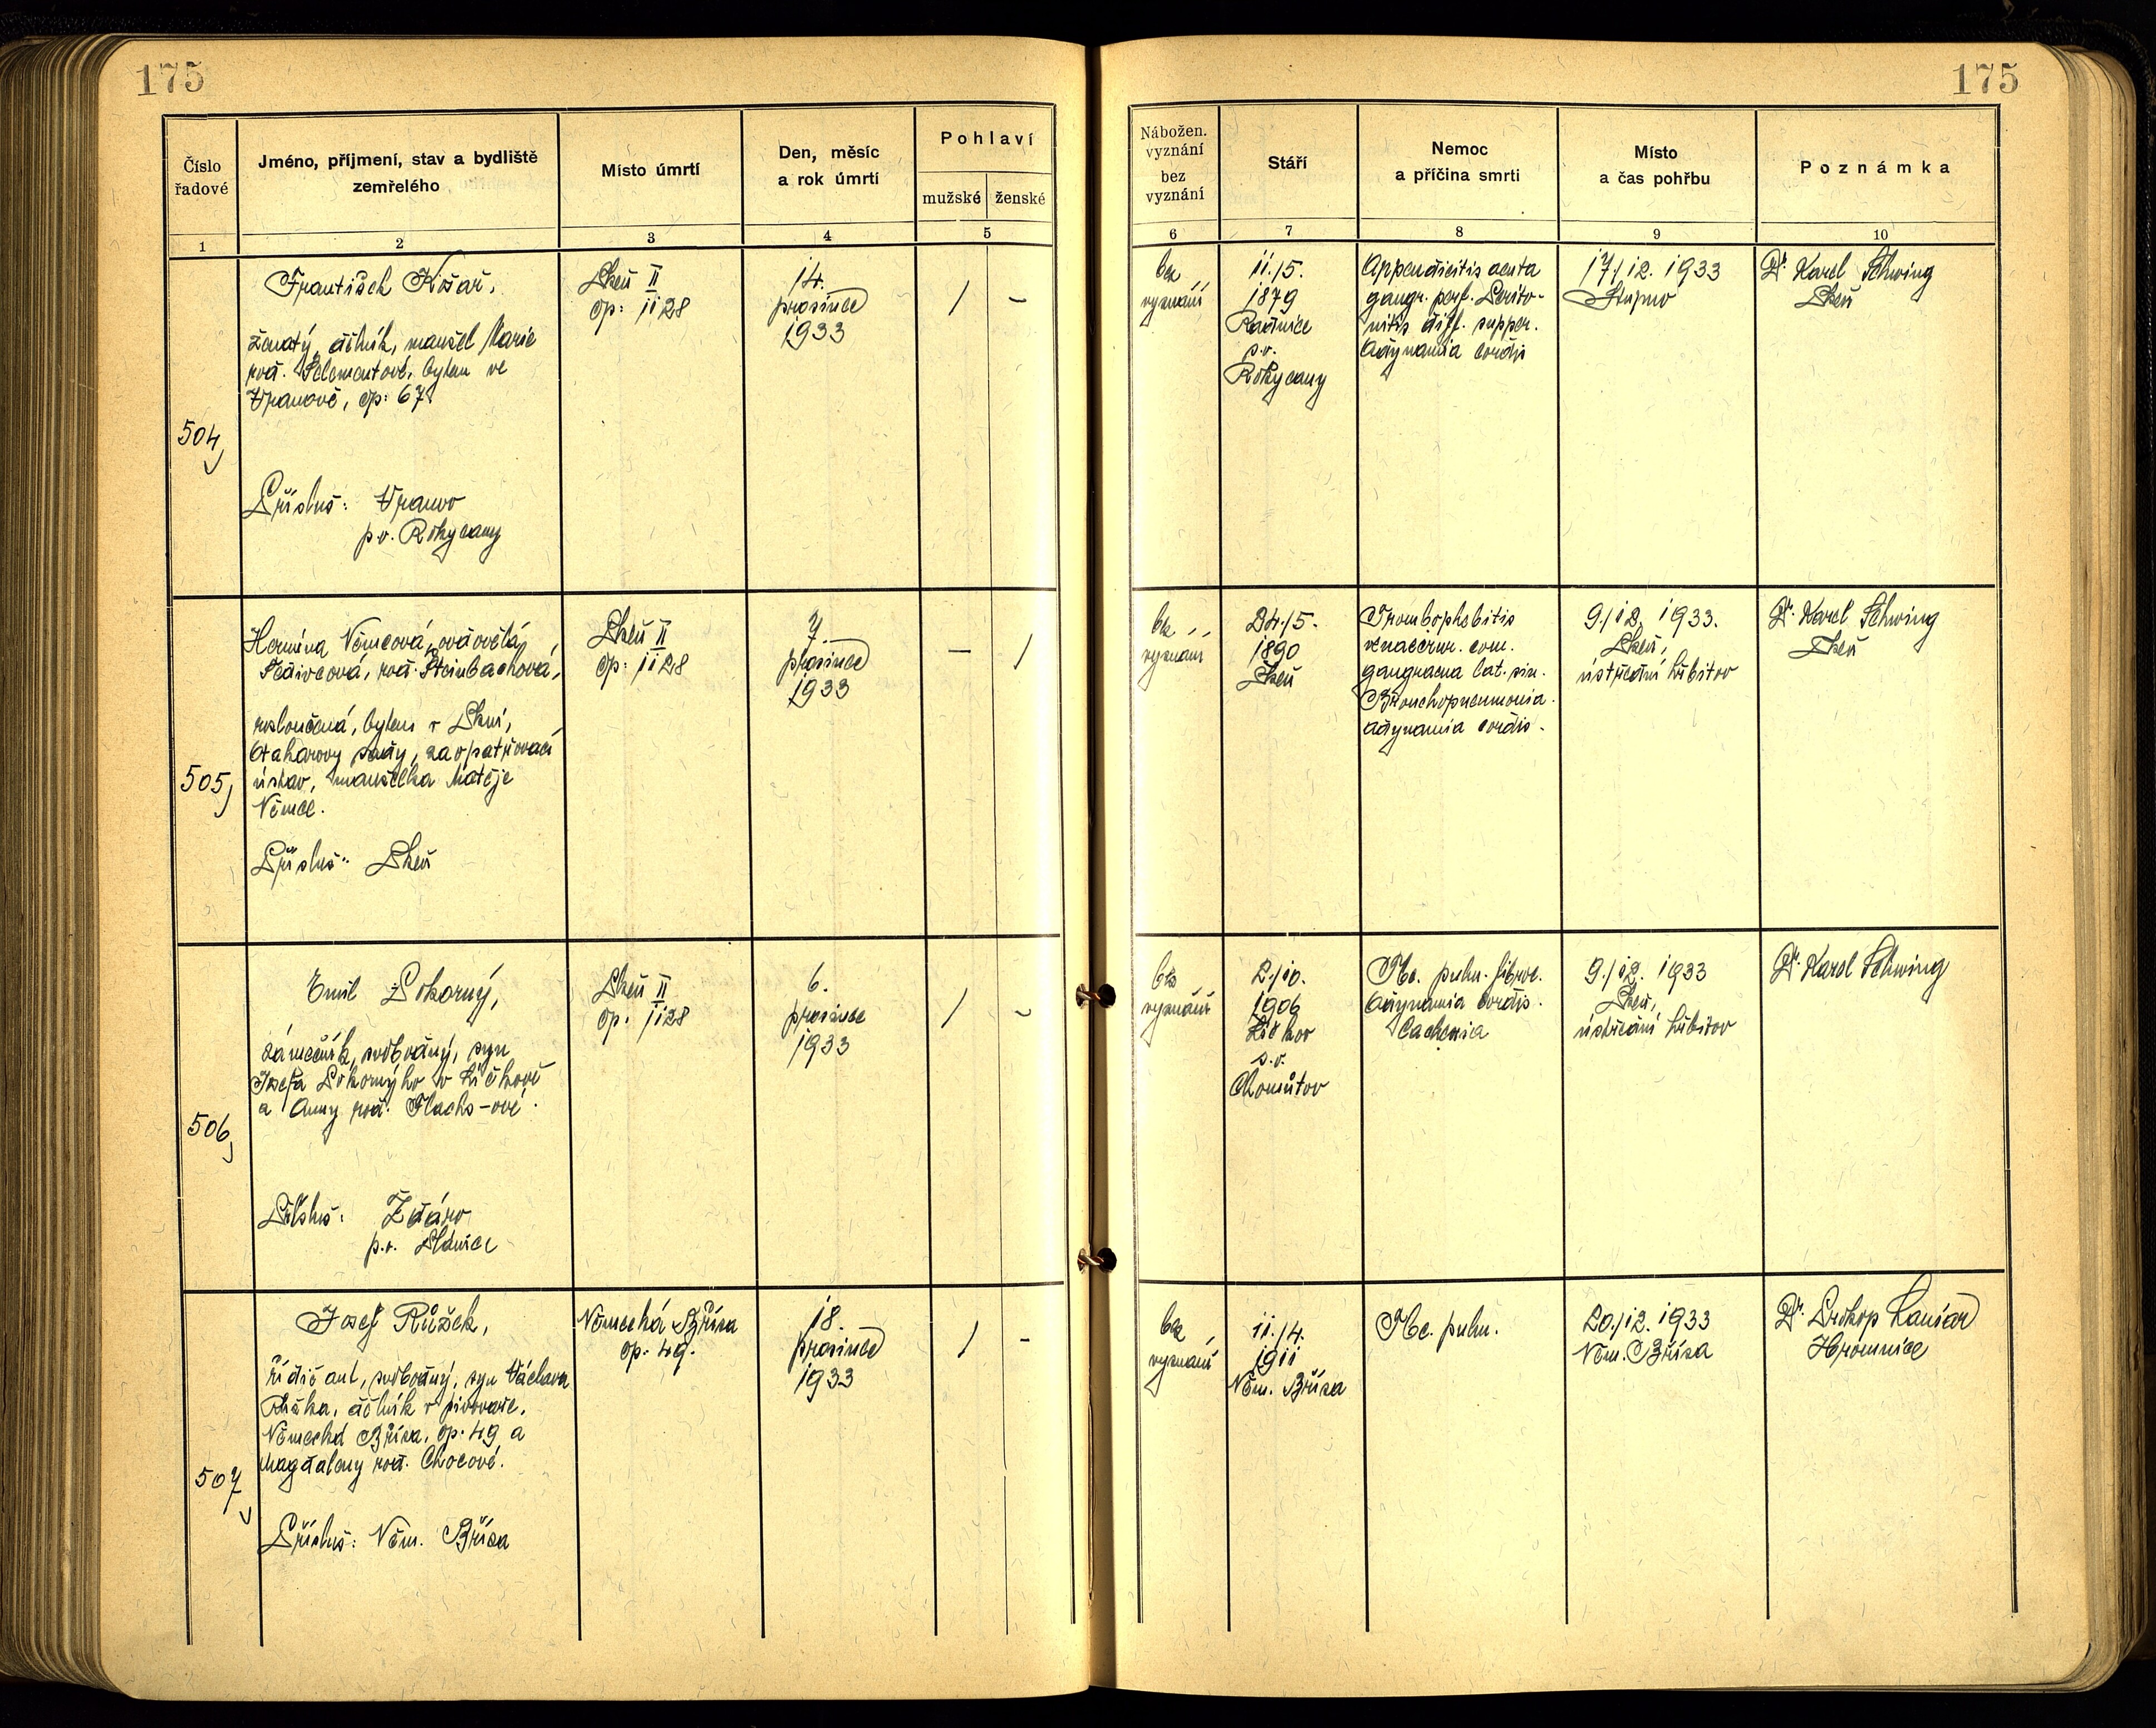 175
175
Číslo řadové
Jméno, příjmení, stav a bydliště zemřelého
Místo úmrtí
Den, měsíc a rok úmrtí
Pohlaví
mužské
ženské
Nábožen. vyznání bez vyznání
Stáří
Nemoc a příčina smrti
Místo a čas pohřbu
Poznámka
1
2
3
4
5
6
7
8
9
10
504
František Kožař,
ženatý, dělník, manžel Marie
roz. bytem ve
Vranově, čp: 67
Přísluš: Vranov
p.o. Rokycany
Plzeň II
čp: 1128
14.
prosince
1933
/
-
bez
vyznání
11./5.
1879
Radnice
p.o.
Rokycany
Appendicitis acuta
gangr. perf. Perito-
nitis diff. suppur.
Adynamia cordis
17./12. 1933
Stupno
Dr. Karel Schwing
Plzeň
505
Hermína Němcová, ovdovělá
roz. Steinbachová,
rozloučená, bytem v Plzni,
sady, zaopatřovací
ústav, manželka Matěje
Němce.
Přísluš: Plzeň
Plzeň II
čp: 1128
7.
prosince
1933
-
/
bez
vyznání
24./5.
1890
Plzeň
Trombophebitis
com.
gangraena lat. sin.
Bronchopneumonia.
adynamia cordis.
9./12. 1933.
Plzeň,
ústřední hřbitov
Dr. Karel Schwing
Plzeň
506
Emil Pokorný,
zámečník, svobodný, syn
Josefa Pokorného v
a Anny roz. Flachs-ové.
Přísluš: Žďár
p.o. Blovice
Plzeň II
čp. 1128
6.
prosince
1933
/
-
bez
vyznání
2./10.
1906
s.o.
Chomutov
Tbc. pulm. fibroc.
Adynamia cordis.
Cachexia
9./12. 1933
Plzeň,
ústřední hřbitov
Dr. Karel Schwing
507
Josef Růžek,
řidič aut, svobodný, syn Václava
Růžka, dělník v pivovaře,
Německá Bříza, čp. 49 a
Magdaleny roz. Chocové.
Přísluš: Něm. Bříza
Německá Bříza
čp. 49.
18.
prosince
1933
/
-
bez
vyznání
11./4.
1911
Něm. Bříza
Tbc. pulm.
20./12. 1933
Něm. Bříza
Dr. Prokop
Hromnice